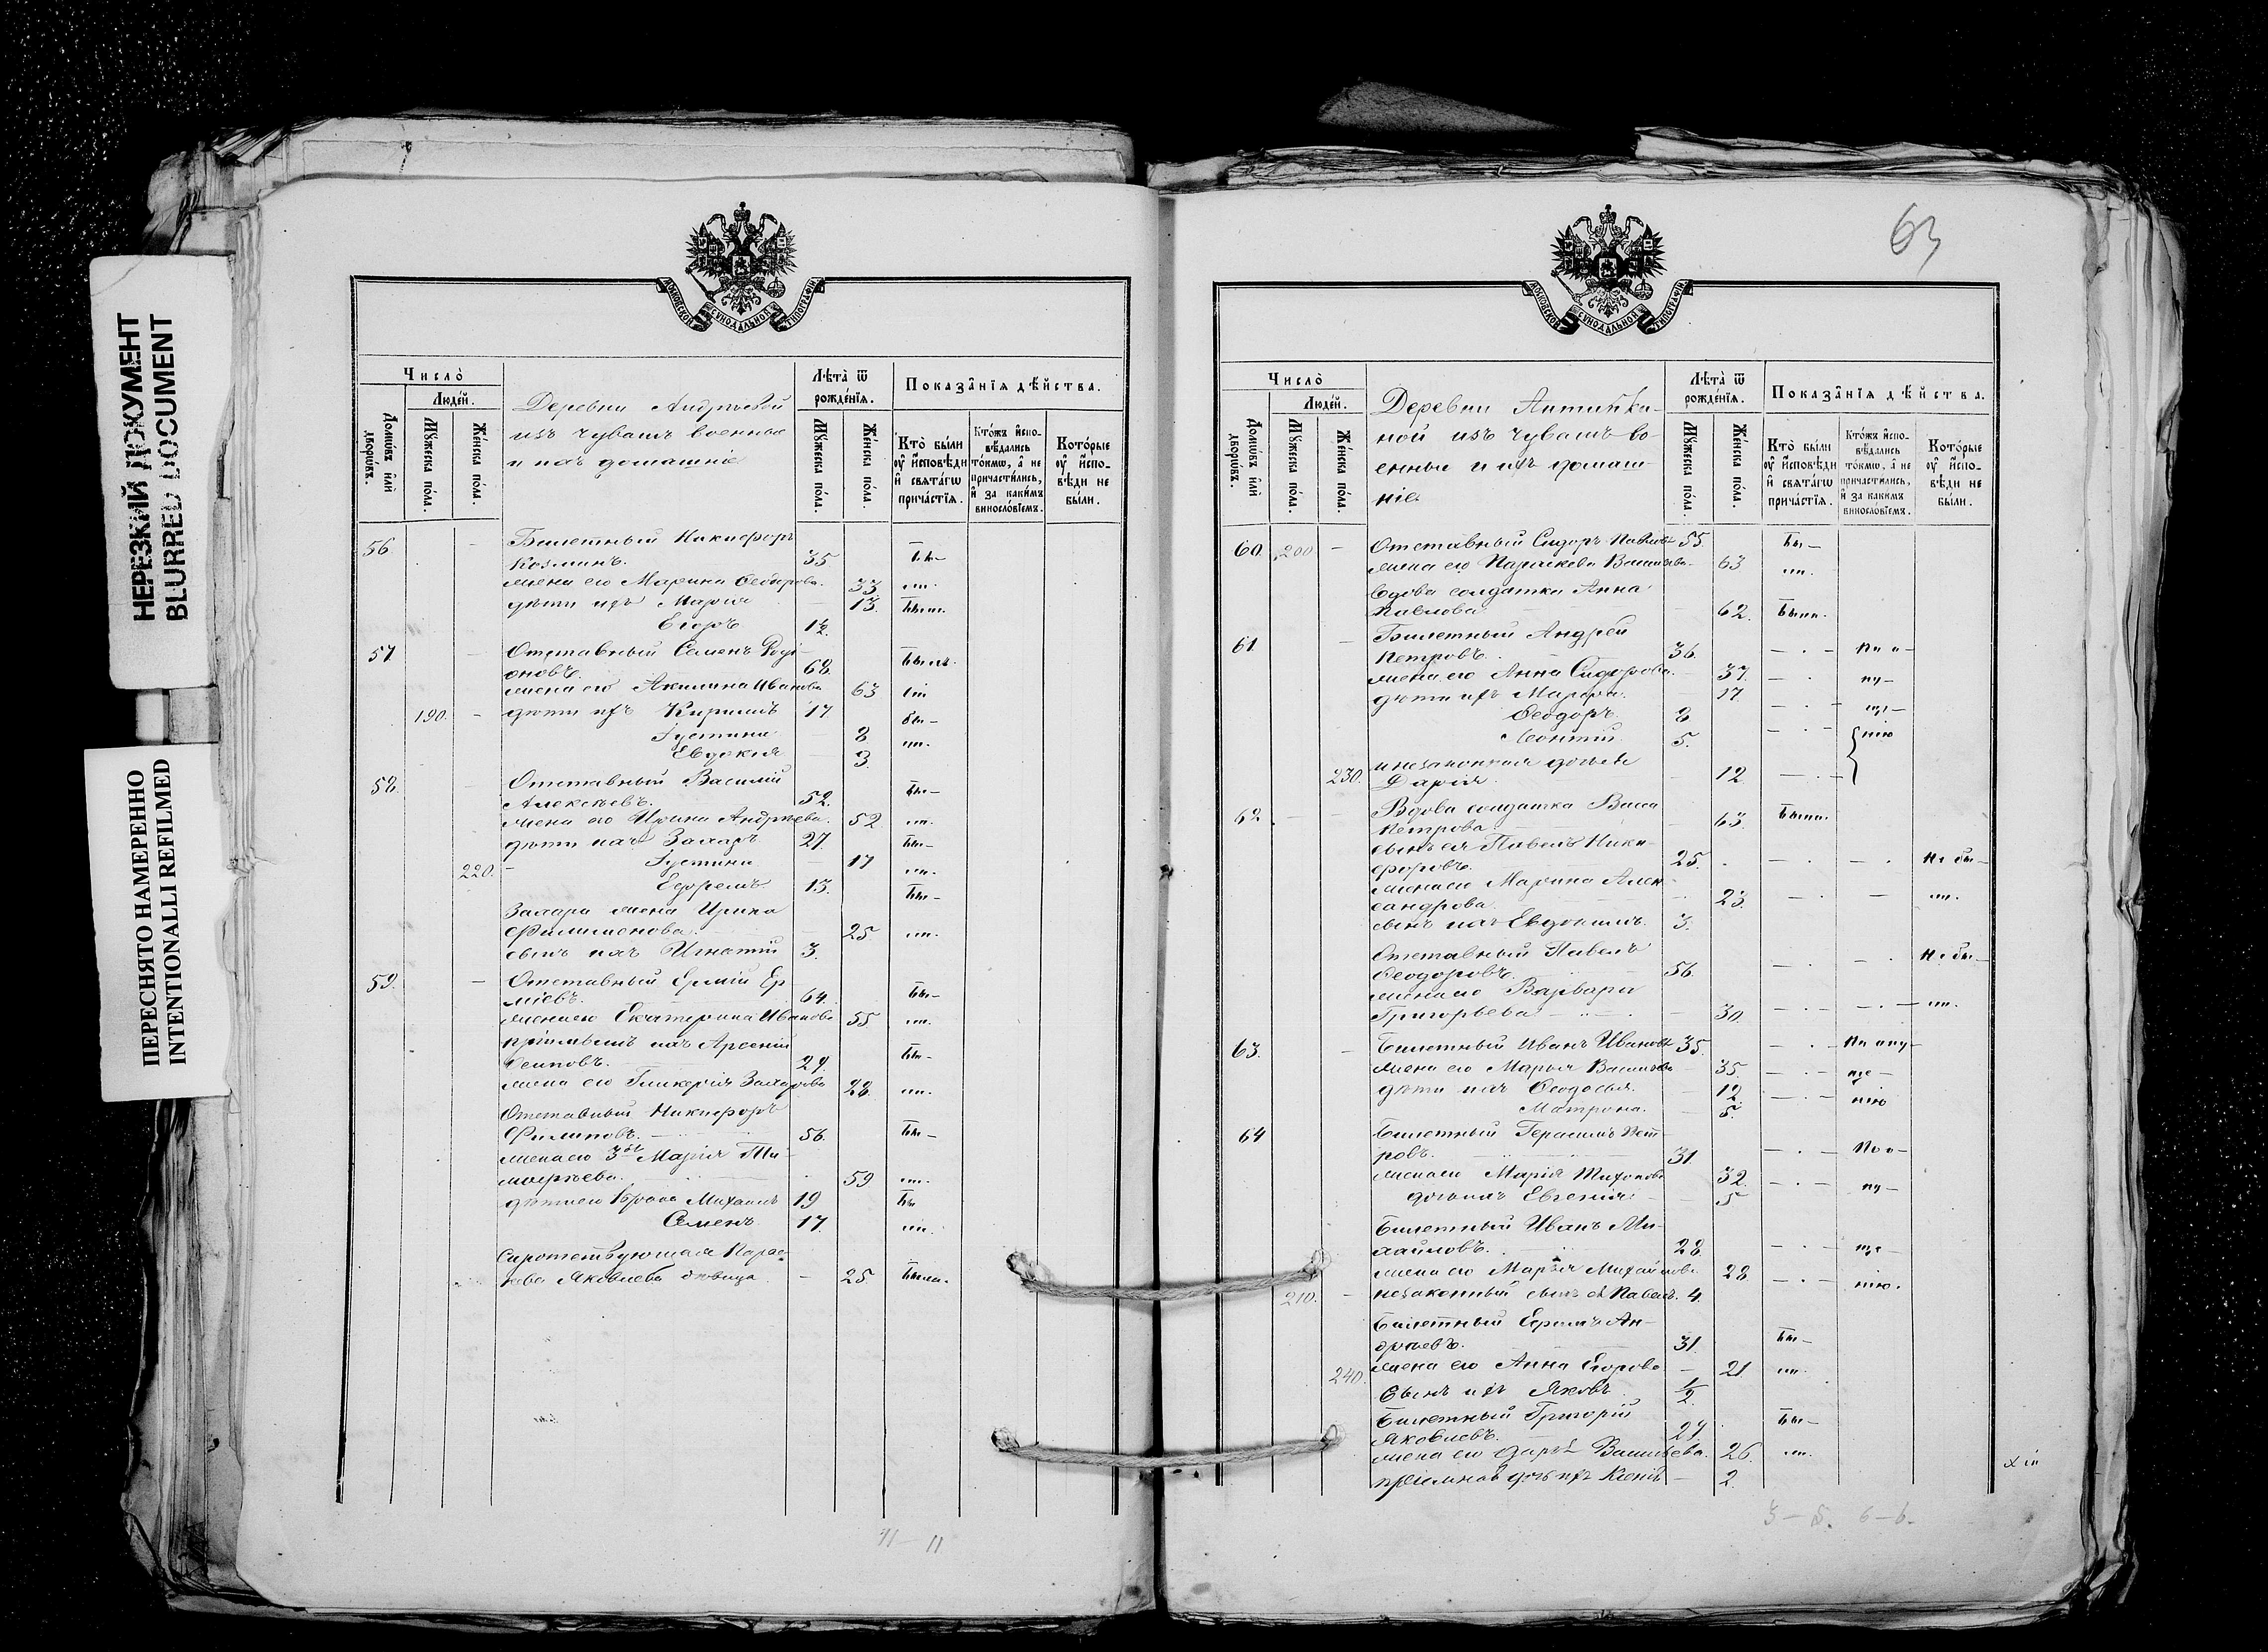 НЕРЕЗКИЙ ДОКУМЕНТ
BLURRED DOCUMENT
ПЕРЕСНЯТО НАМЕРЕННО
INTENTIONALLI REFILMED
МОСКОВСКОЙ СѴНОДАЛЬНОЙ ТИПОГРАФІИ
Число̀
Людей.
Домѡвъ и҆лѝ дворѡвъ.
Мꙋ́жеска по́ла.
Же́нска по́ла.
Деревни Андреевой
изъ чувашъ военные
и ихъ домашніе
Лѣта̀ ѿ рожде́нїѧ.
Мꙋ́жеска по́ла.
Же́нска по́ла.
Показа̑нїѧ дѣ́йства.
Кто̀ бы́ли ᲂу҆ и҆сповѣди и҆ свѧта́гѡ прича́стїѧ.
Кто́жъ и҆сповѣдались то́кмѡ, а҆ не причасти́лись, и҆ за каки́мъ винослові́емъ.
Кото́рые ᲂу҆ и҆споვѣди не бы́ли.
56. Билетный Никифоръ
Козминъ. 35 бы-
жена его Марина Ѳеодорова. 33 ли.
дѣти ихъ Марія 13. были.
Егоръ 12.
57. Отставный Семенъ Роди-
оновъ. 68. былъ.
жена его Акилина Иванова 63
190. дѣти ихъ Кирилъ 17. бы-
Іустина 8 ли.
Евдокія 3
58. Отставный Василій
Алексѣевъ. 52. бы-
жена его Ирина Андреева. 52 ли.
дѣти ихъ Захаръ 27. бы-
220. Іустина 17 ли.
Ефремъ 13. бы-
Захара жена Ирина
Филимонова. 25 ли.
сынъ ихъ Игнатій 3.
59. Отставный Ермій Ер-
міевъ. 64. бы-
жена его Екатерина Иванова 55 ли.
пріемышъ ихъ Арсеній
Осиповъ. 29. бы-
жена его Гликерія Захарова 28. ли.
Отставный Никифоръ
Филиповъ. 56. бы-
жена его Марія Ти-
мофеева. 59 ли.
дѣти его Михаилъ 19 бы
Семенъ 17. ли.
Сиротствующая Парас-
кева Яковлева дѣвица 25 была.
11 - 11
63
МОСКОВСКОЙ СѴНОДАЛЬНОЙ ТИПОГРАФІИ
Число̀
Людей.
Домѡвъ и҆лѝ дворѡвъ.
Мꙋ́жеска по́ла.
Же́нска по́ла.
Деревни Антипки-
ной изъ чувашъ во-
енные и ихъ домаш-
ніе
Лѣта̀ ѿ рожде́нїѧ.
Мꙋ́жеска по́ла.
Же́нска по́ла.
Показа̑нїѧ дѣ́йства.
Кто̀ бы́ли ᲂу҆ и҆сповѣди и҆ свѧта́гѡ прича́стїѧ.
Кто́жъ и҆сповѣдались то́кмѡ, а҆ не причасти́лись, и҆ за каки́мъ винослові́емъ.
Кото́рые ᲂу҆ и҆сповѣди не бы́ли.
60. 200 Отставный Сидоръ Павловъ 55. бы-
жена его Параскева Васильева 63 ли.
Вдова солдатка Анна
Павлова 62. была.
61 Билетный Андрей
Петровъ. 36. По о-
жена его Анна Сидорова. 37. пу-
дѣти ихъ Марѳа. 17. ще-
Ѳеодоръ 8 нію
Леонтій 5.
230. незаконная дочь ея
Дарія 12
62. Вдова солдатка Васса
Петрова. 63. была.
сынъ ея Павелъ Ники-
форовъ. 25. Не бы-
жена его Марина Алек-
сандрова 23. ли.
сынъ ихъ Евдокимъ. 3.
Отставный Павелъ
Ѳеодоровъ. 56. Не бы-
жена его Варвара
Григорьева 30. ли.
63. Билетный Иванъ Ивановъ 35. По опу-
жена его Марья Васильева 35. ще-
дѣти ихъ Ѳеодосья. 12. нію
Матрона. 5.
64 Билетный Герасимъ Пет-
ровъ. 31. По о-
жена его Марія Тихонова 32. пу-
дочь ихъ Евгенія 5
Билетный Иванъ Ми-
хайловъ. 28. ще-
жена его Марія Михайлова 28. нію.
210. незаконный сынъ ея Павелъ. 4.
Билетный Ефимъ Ан-
дреевъ. 31. бы-
240. жена его Анна Егорова 21 ли.
Сынъ ихъ Яковъ 1/2
Билетный Григорій
Яковлевъ. 29. бы-
жена его Дарья Васильева. 26. ли.
пріемная дочь ихъ Ксенія 2.
3-5. 6-6.